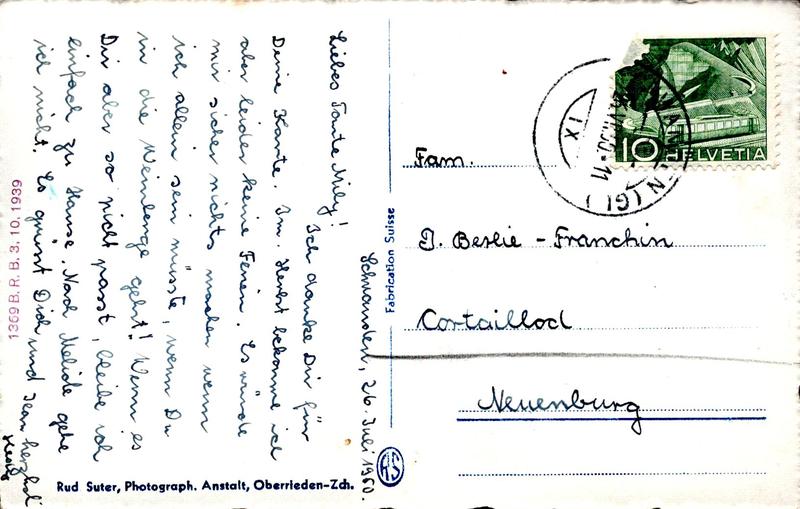 Schwanden, 26. Juli 1950.
Liebes Tante Mily!
Ich danke Dir für
Deine Karte. Im Herbst bekomme ich
aber leider keine Ferien. Es würde
mir sicher nichts machen wenn
ich allein sein müsste, wenn Du
in die Weinlese gehst! Wenn es
Dir aber so nicht passt, bleibe ich
einfach zu Hause. Nach Melide gehe
ich nicht. Es grüsst Dich und Jean herzlich
1369 B. R. B. 3. 10. 1939
Rud Suter, Photograph. Anstalt, Oberrieden-Zch.
Fabrication Suisse
10 HELVETIA
(GL)
IX
Fam.
J. Beslie - Franchin
Cortaillod
Neuenburg